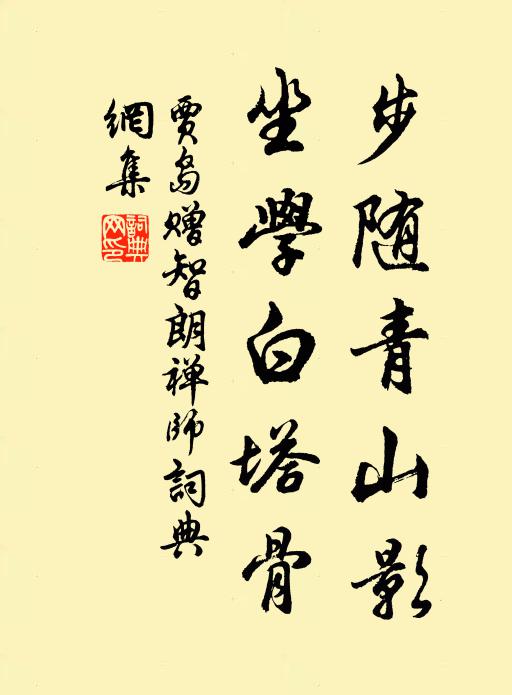 步随青山影
坐學白塔骨
賈島贈智朗禅師詞典
網集
詞典
网印